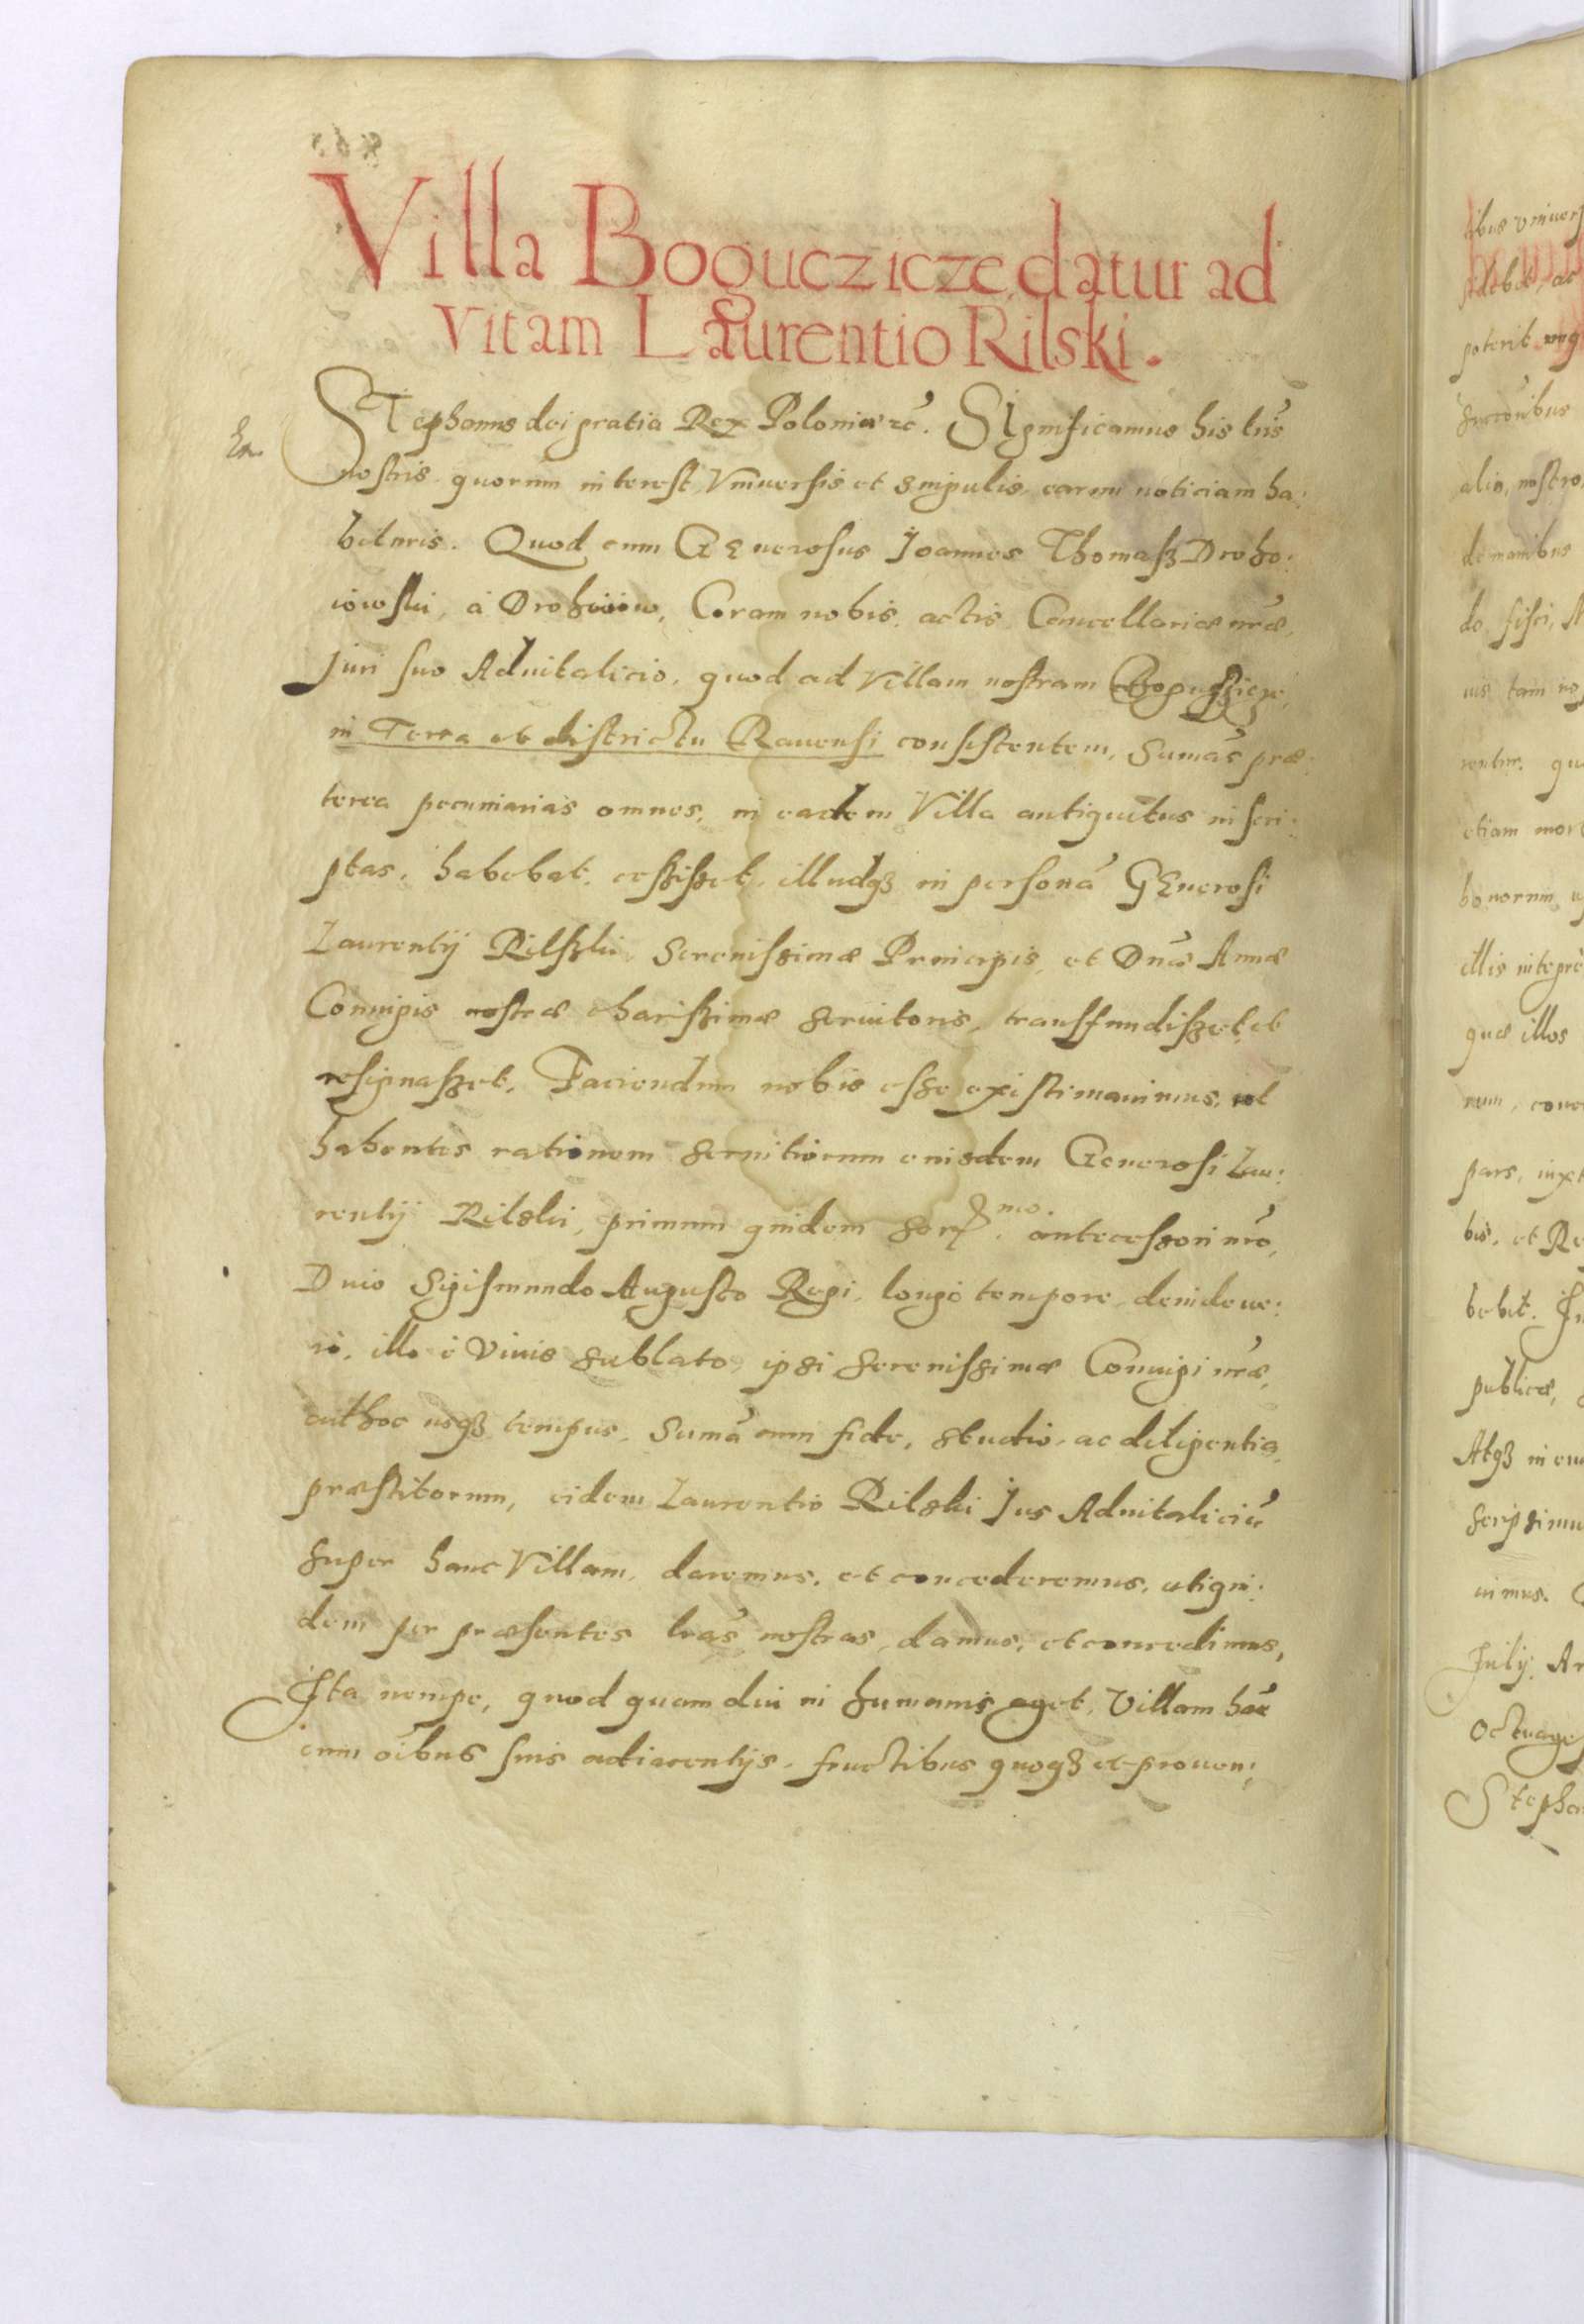 Villa Boguczicze datur ad
Vitam Laurentio Rilski.
STephanus dei gratia Rex Poloniæ rc̃. SIgnificamus his lr̃is
nostris quorum interest Vniuersis et singulis, earum noticiam ha:
bituris. Quod cum GEnerosus Joannes Thomaſz Droho:
iowski, á Drohoiow, Coram nobis, actis Cancellariæ nr̃æ,
Juri suo Aduitalicio, quod ad Villam nostram
in Terra et districtu Rauensi consistentem, Sumas̃ præ:
terea pecuniarias omnes, in eadem Villa antiquitus inscri:
ptas, habebat, ceſziſzet, illudqꝫ in persona̋ GEnerosi
Laurentij Rilſzki, Serenissimæ Principis, et Dn̄æ Annæ
Coniugis nostræ chariſzimæ seruitoris, transfundiſzet, et
resignaſzet. Faciendum nobis esse existimauimus, ut
habentes rationem seruitiorum eiusdem Generosi Lau:
rentij Rilski, primum quidem Ser. mo antecessori nr̃o,
Diuo Sigismundo Augusto Regi, longo tempore, deinde ve:
ró, illo é Viuis sublato, ipsi serenissimæ Coniugi nr̃æ,
adhoc usqꝫ tempus, Suma̋ cum fide, studio, ac diligentia,
præstitorum, eidem Laurentio Rilski Jus Aduitaliciũ
super hanc Villam, daremus, et concederemus, utiqui:
dem per præsentes lr̃as nostras, damus, et concedimus,
Ita nempe, quod quam diu in humanis aget, Villam hãc
cum oĩbus suis adiacentijs, fructibus quoqꝫ et prouen: